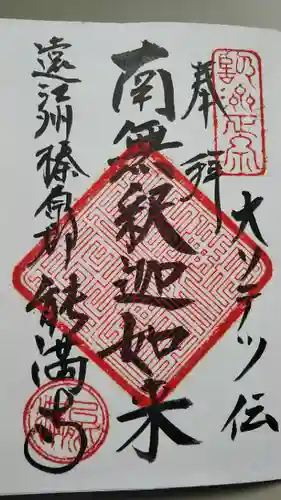 奉拝
大ソテツ伝
南無釈迦如来
遠江州榛原郡
能満寺